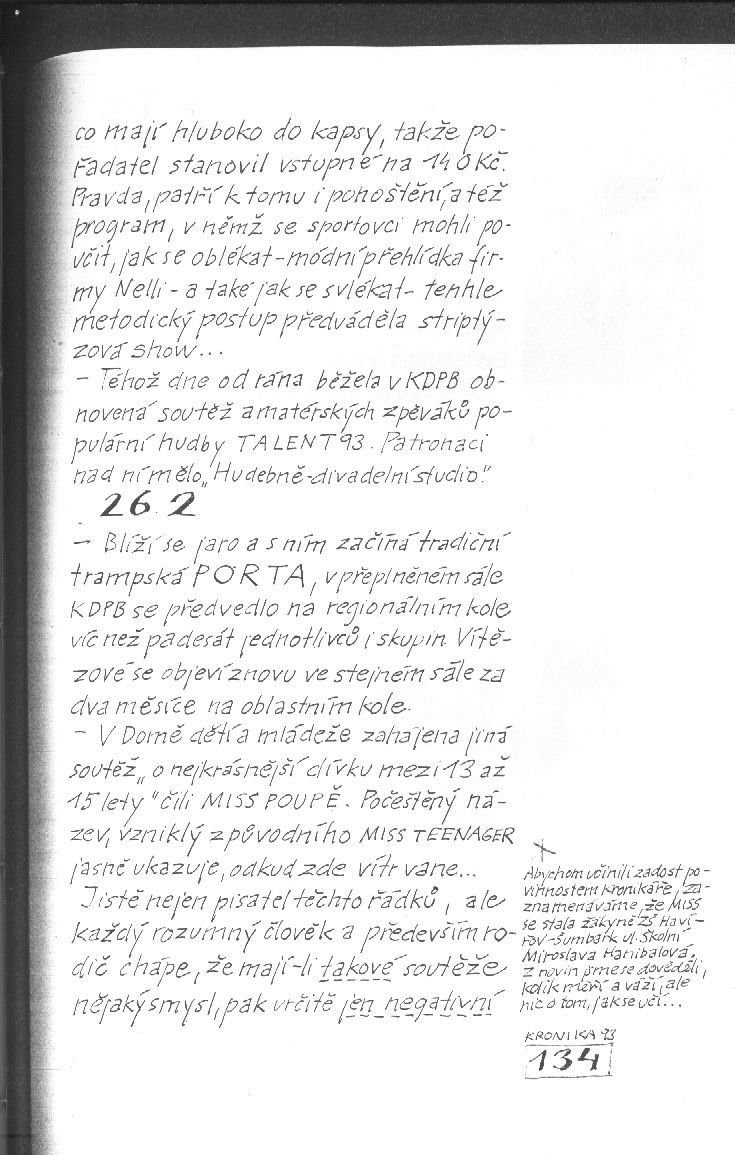 co mají hluboko do kapsy, takže po-
řadatel stanovil vstupné na 140 Kč.
Pravda, patří k tomu i pohoštění, a též
program, v němž se sportovci mohli po-
učit, jak se oblékat - módní přehlídka fir-
my Nelli - a také jak se svlékat - tenhle
metodický postup předváděla striptý-
zová show...
- Téhož dne od rána běžela v KDPB ob-
novená soutěž amatérských zpěváků po-
pulární hudby TALENT 93. Patronaci
nad ní mělo „Hudebně-divadelní studio".
26.2
- Blíží se jaro a s ním začíná tradiční
trampská PORTA, v přeplněném sále
KDPB se předvedlo na regionálním kole
víc než padesát jednotlivců i skupin. Vítě-
zové se objeví znovu ve stejném sále za
dva měsíce na oblastním kole.
- V Domě dětí a mládeže zahájena jiná
soutěž „o nejkrásnější dívku mezi 13 až
15 lety" čili MISS POUPĚ. Počeštěný ná-
zev, vzniklý z původního MISS TEENAGER
jasně ukazuje, odkud zde vítr vane...
Jistě nejen pisatel těchto řádků, ale
každý rozumný člověk a především ro-
dič chápe, že mají-li takové soutěže
nějaký smysl, pak určitě jen negativní
x
Abychom učinili zadost po-
vinnostem kronikáře, za-
znamenáváme, že MISS
se stala žákyně ZŠ Haví-
řov-Šumbark ul. Školní
Miroslava Hanibalová.
Z novin jsme se dověděli,
kolik měří a váží, ale
nic o tom, jak se učí...
KRONIKA 93
134